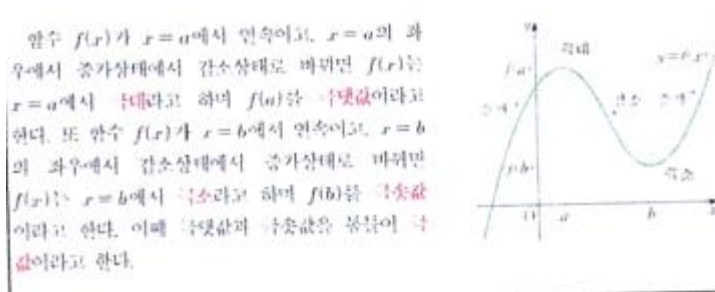 함수 f(x)가 x=a에서 연속이고, x=a의 좌
우에서 증가상태에서 감소상태로 바뀌면 f(x)는
x=a에서 극대라고 하며 f(a)를 극댓값이라고
한다. 또 함수 f(x)가 x=b에서 연속이고, x=b
의 좌우에서 감소상태에서 증가상태로 바뀌면
f(x)는 x=b에서 극소라고 하며 f(b)를 극솟값
이라고 한다. 이때 극댓값과 극솟값을 통틀어 극
값이라고 한다.
y
극대
f(a)
y=f(x)
증가
감소
증가
f(b)
극소
O a b x